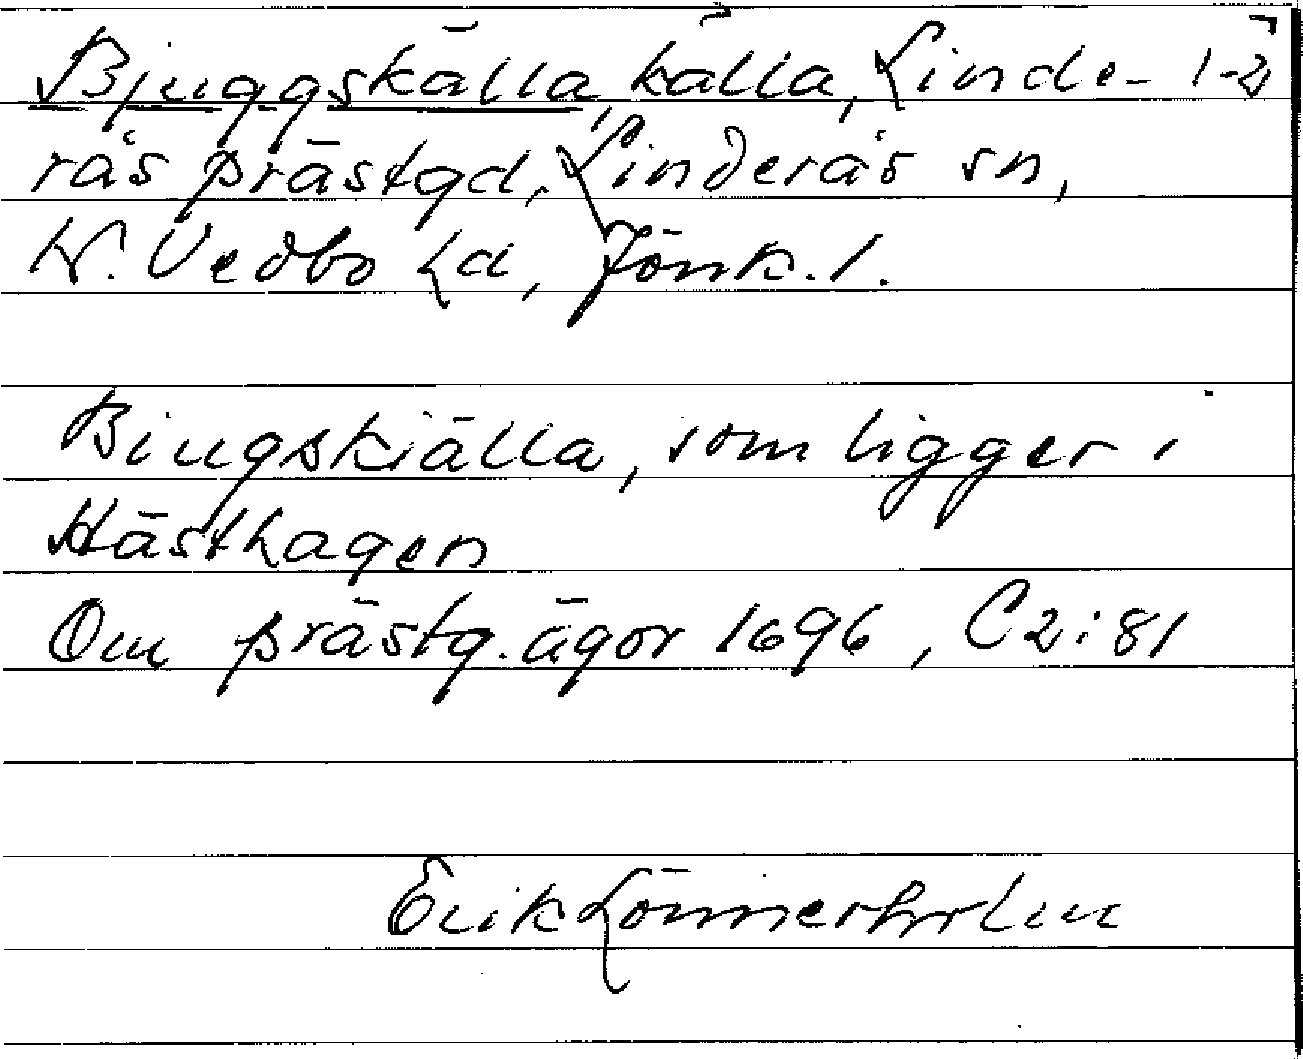 Bjuggskälla, källa, Linde- 1-2
rås prästgd, Linderås sn,
N. Vedbo hd, Jönk. l.
Biugskiälla, som ligger i
Hästhagen
Om prästg. ägor 1696, C2:81
Erik Lönnerholm